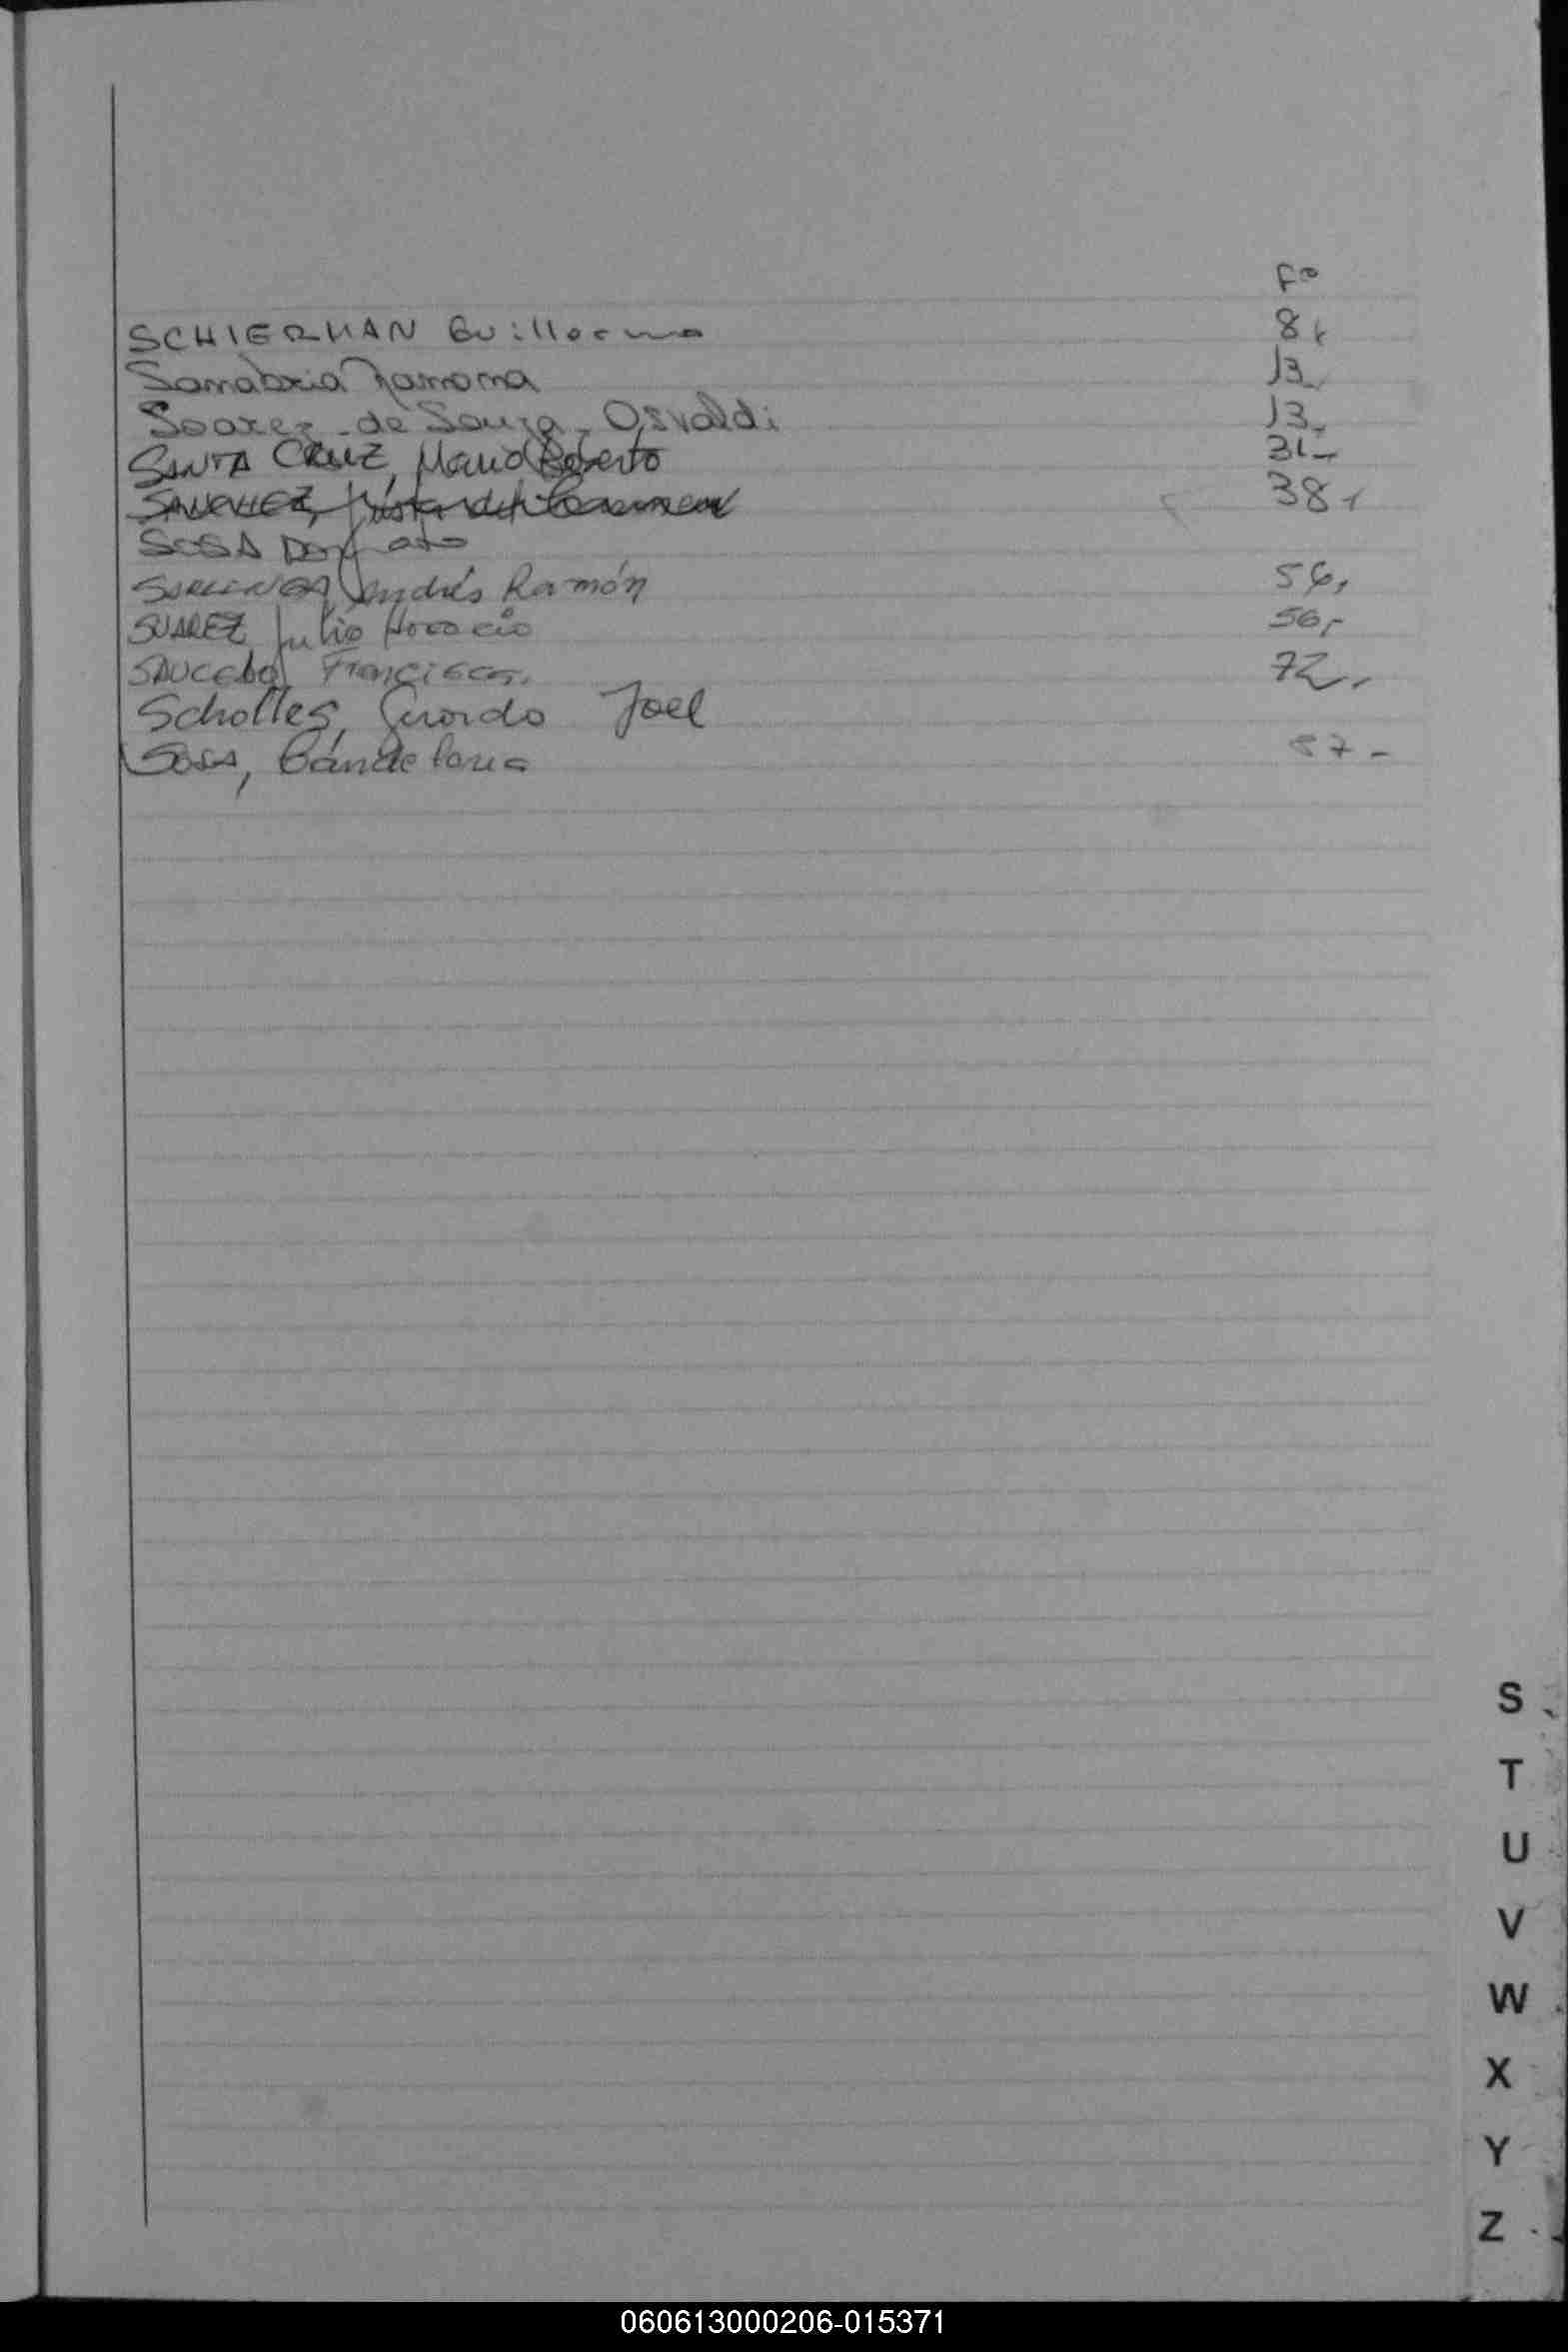 Fº
SCHIERMAN Guillermo 8,
Sanabria Ramona 13,
Soarez de Souza, Osvaldi 13,
SANTA CRUZ, Mario Roberto 31-
SANCHEZ, 38,
SOSA
Andrés Ramón 56,
SUAREZ Julio Horacio 56,-
SAUCEDO Francisco. 72,-
Scholles, Gerardo Joel
Sosa, Cándelaria 87-
S
T
U
V
W
X
Y
Z
060613000206-015371